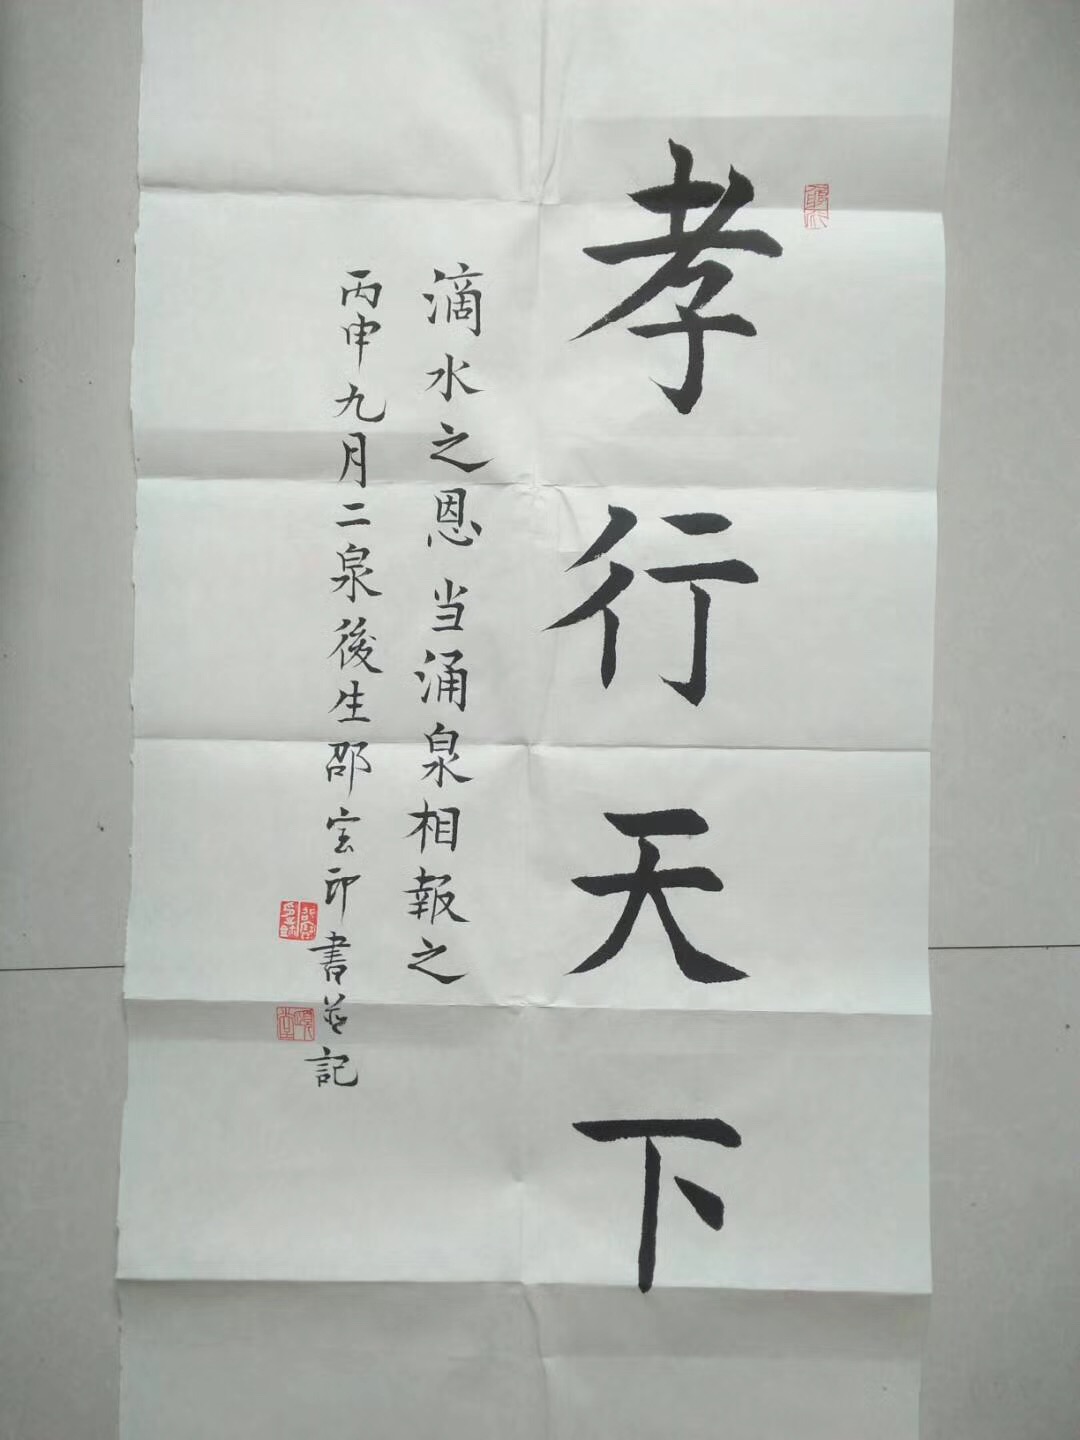 孝行天下
滴水之恩当涌泉相報之
丙申九月二泉後生邵宝印書并記